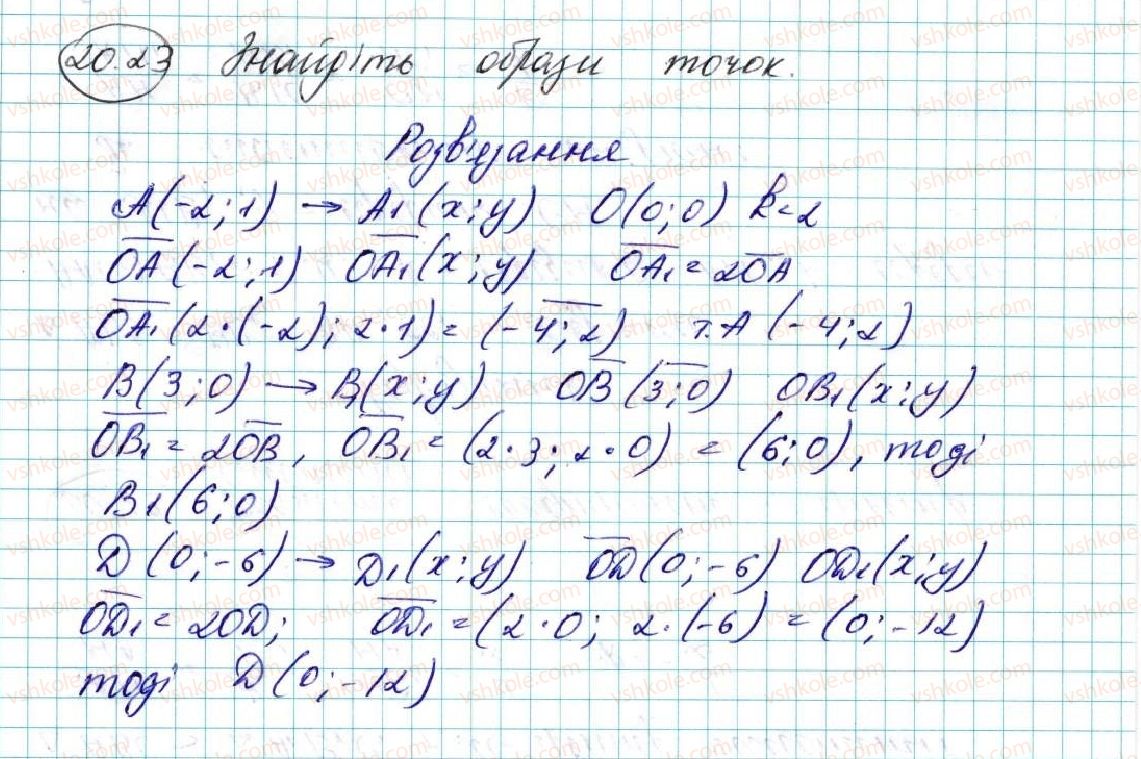 20.23 Знайдіть образи точок.
Розв'язання
A(-2; 1) → A1(x; y) O(0; 0) k=2
OA(-2; 1) OA1(x; y) OA1 = 2OA
OA1(2·(-2); 2·1) = (-4; 2) т.A (-4; 2)
B(3; 0) → B1(x; y) OB(3; 0) OB1(x; y)
OB1 = 2OB, OB1 = (2·3; 2·0) = (6; 0), тоді
B1(6; 0)
D(0; -6) → D1(x; y) OD(0; -6) OD1(x; y)
OD1 = 2OD; OD1 = (2·0; 2·(-6) = (0; -12)
тоді D(0; -12)